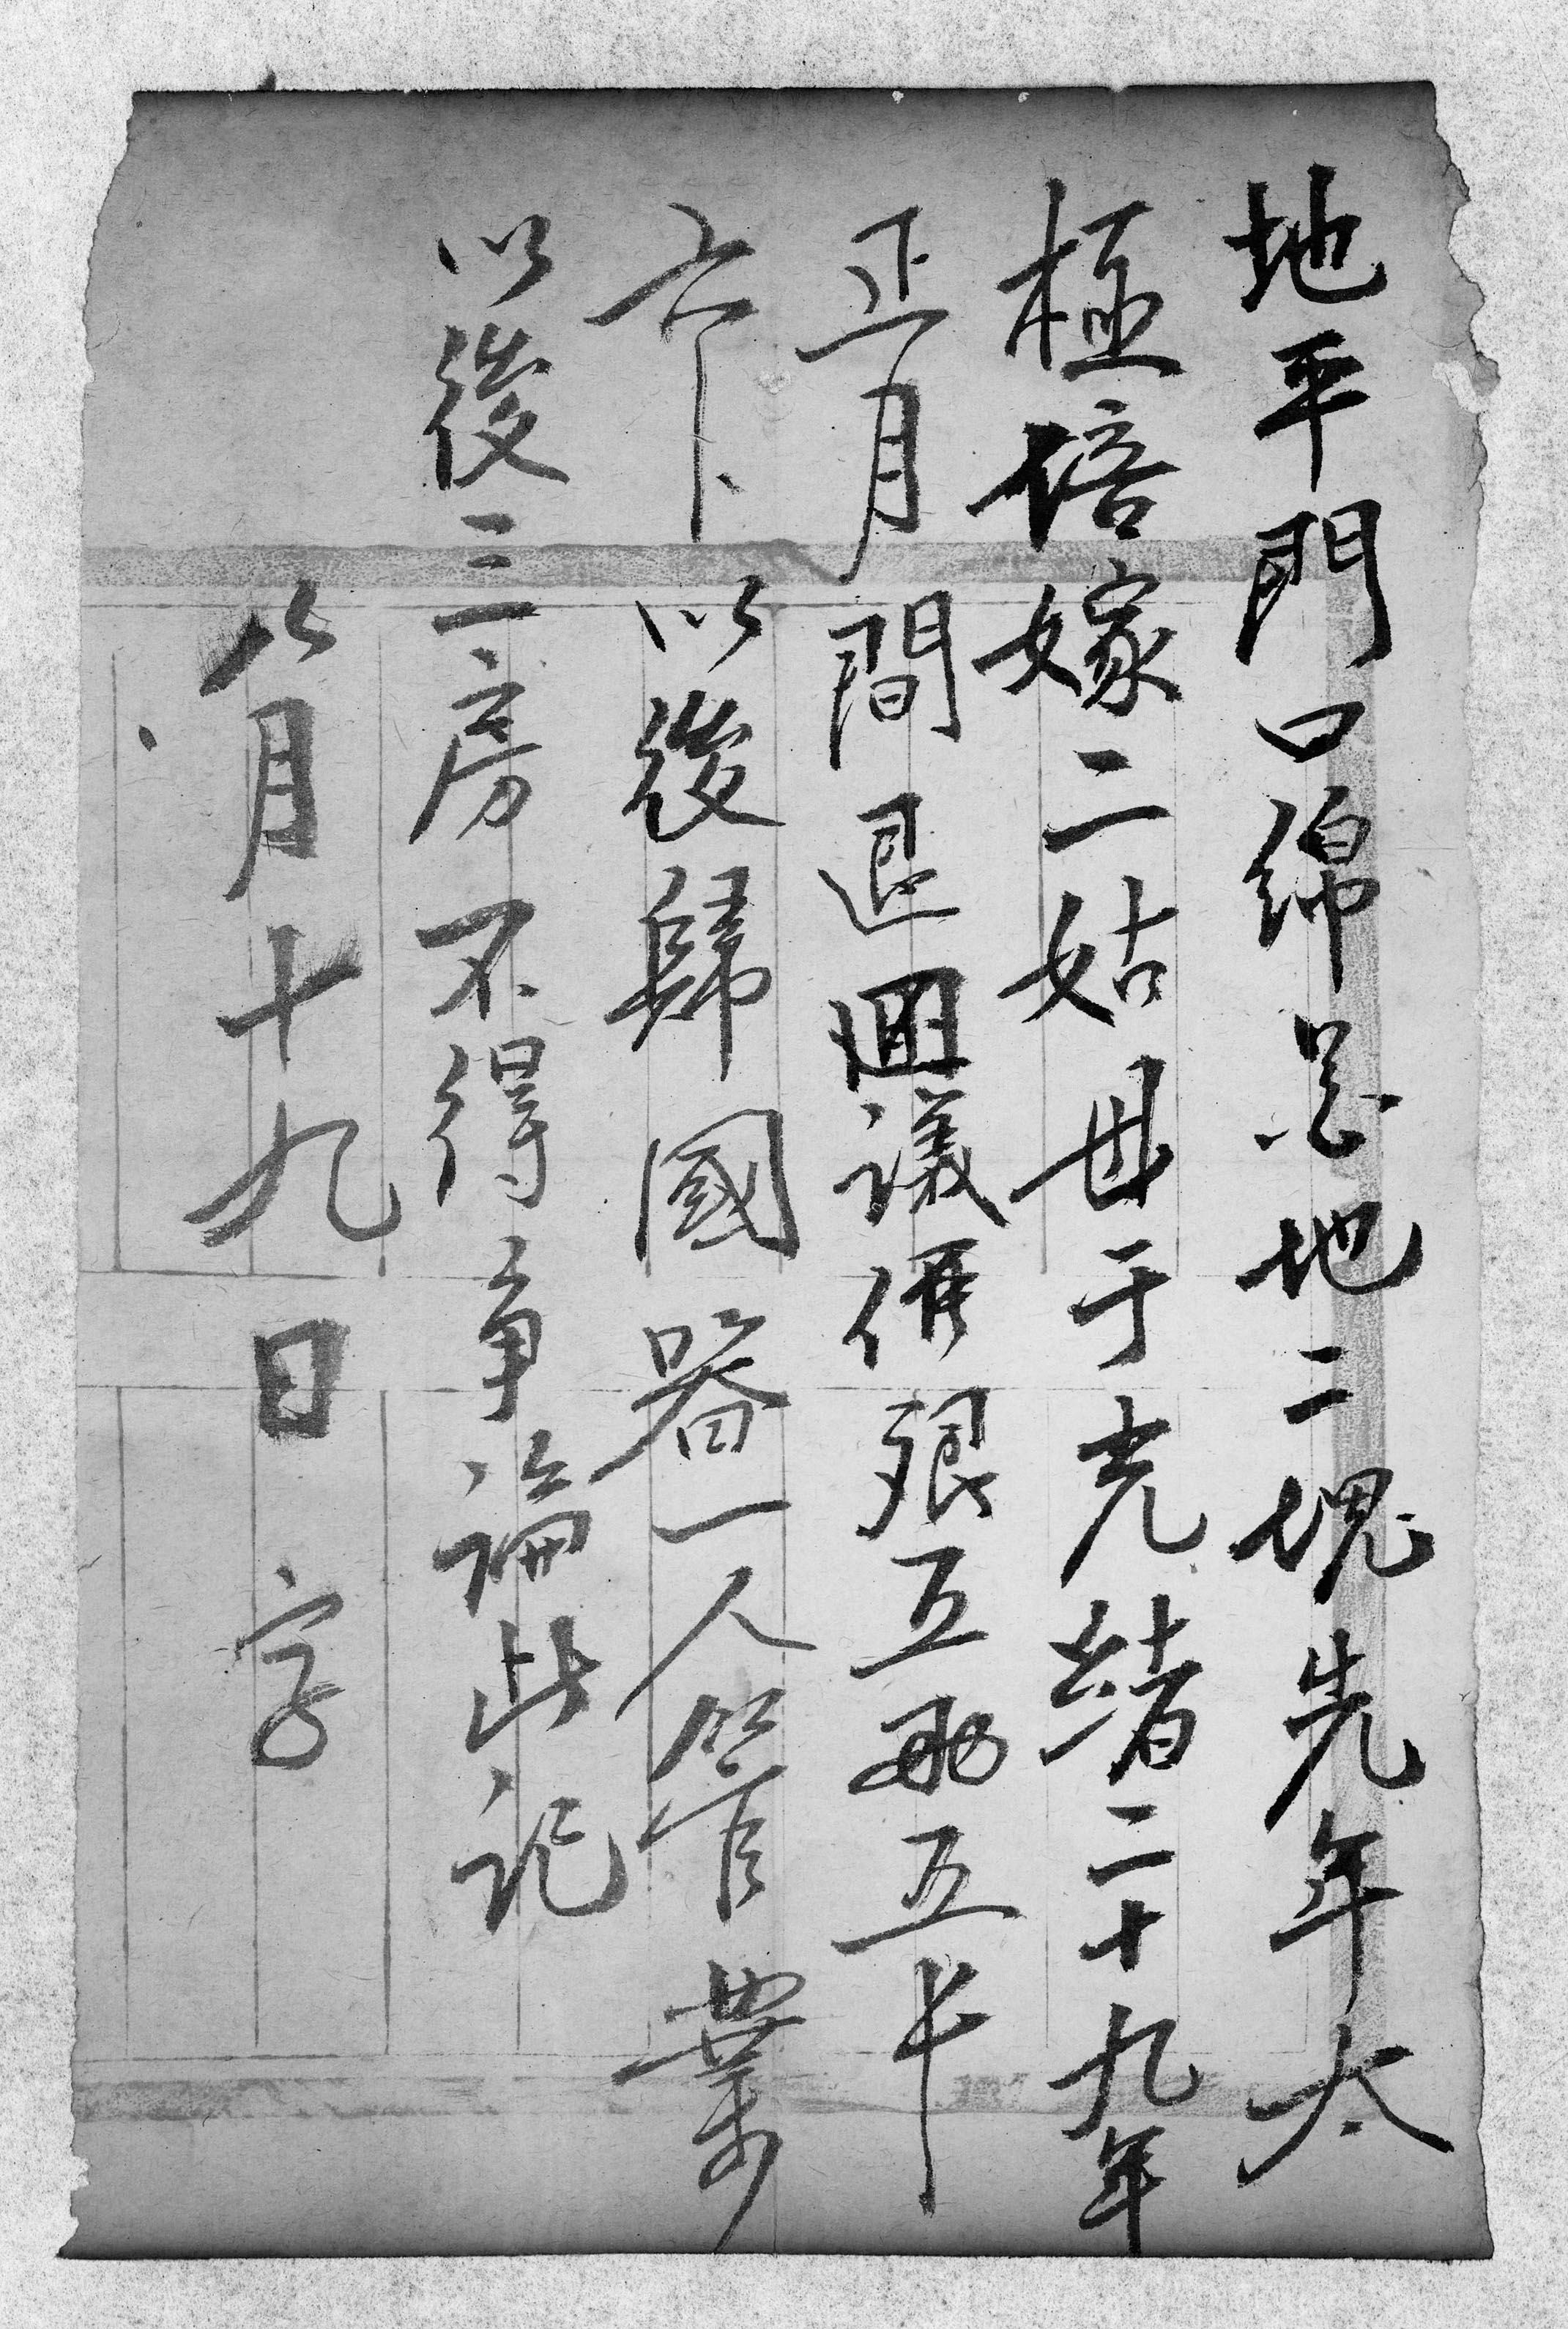 地平門口綿花地二塊先年太
極培嫁二姑母于光緒二十九年
正月間退回議價銀五両五千
六卞以後歸國器一人管業
以後三房不得爭論此記
八月十九日字